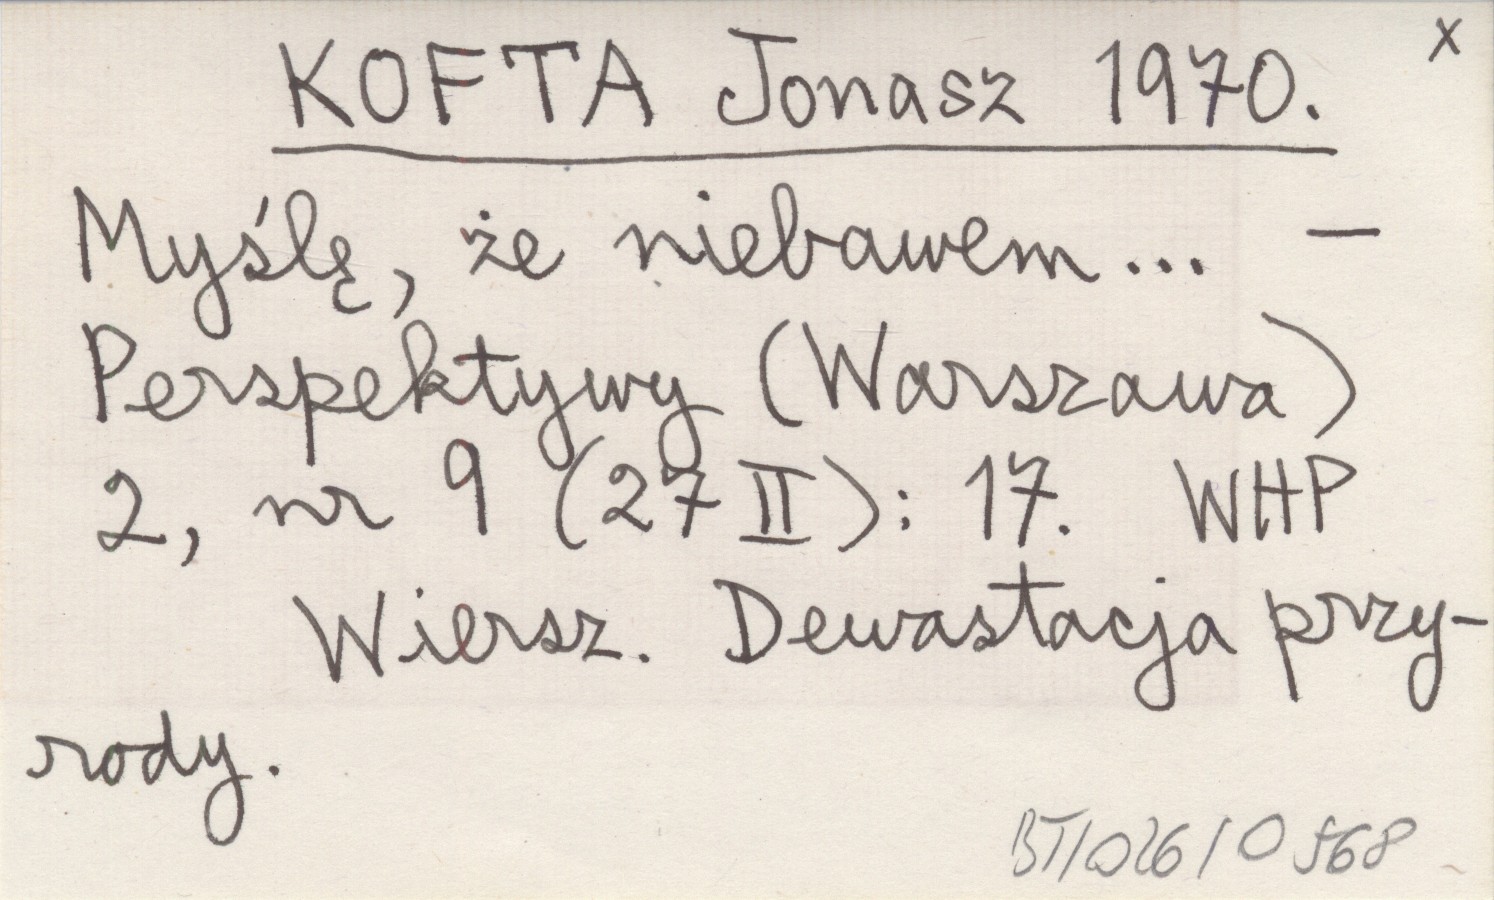 x
KOFTA Jonasz 1970.
Myślę, że niebawem... —
Perspektywy (Warszawa)
2, nr 9 (27 II): 17. WHP
Wiersz. Dewastacja przy-
rody.
BT/026/0568